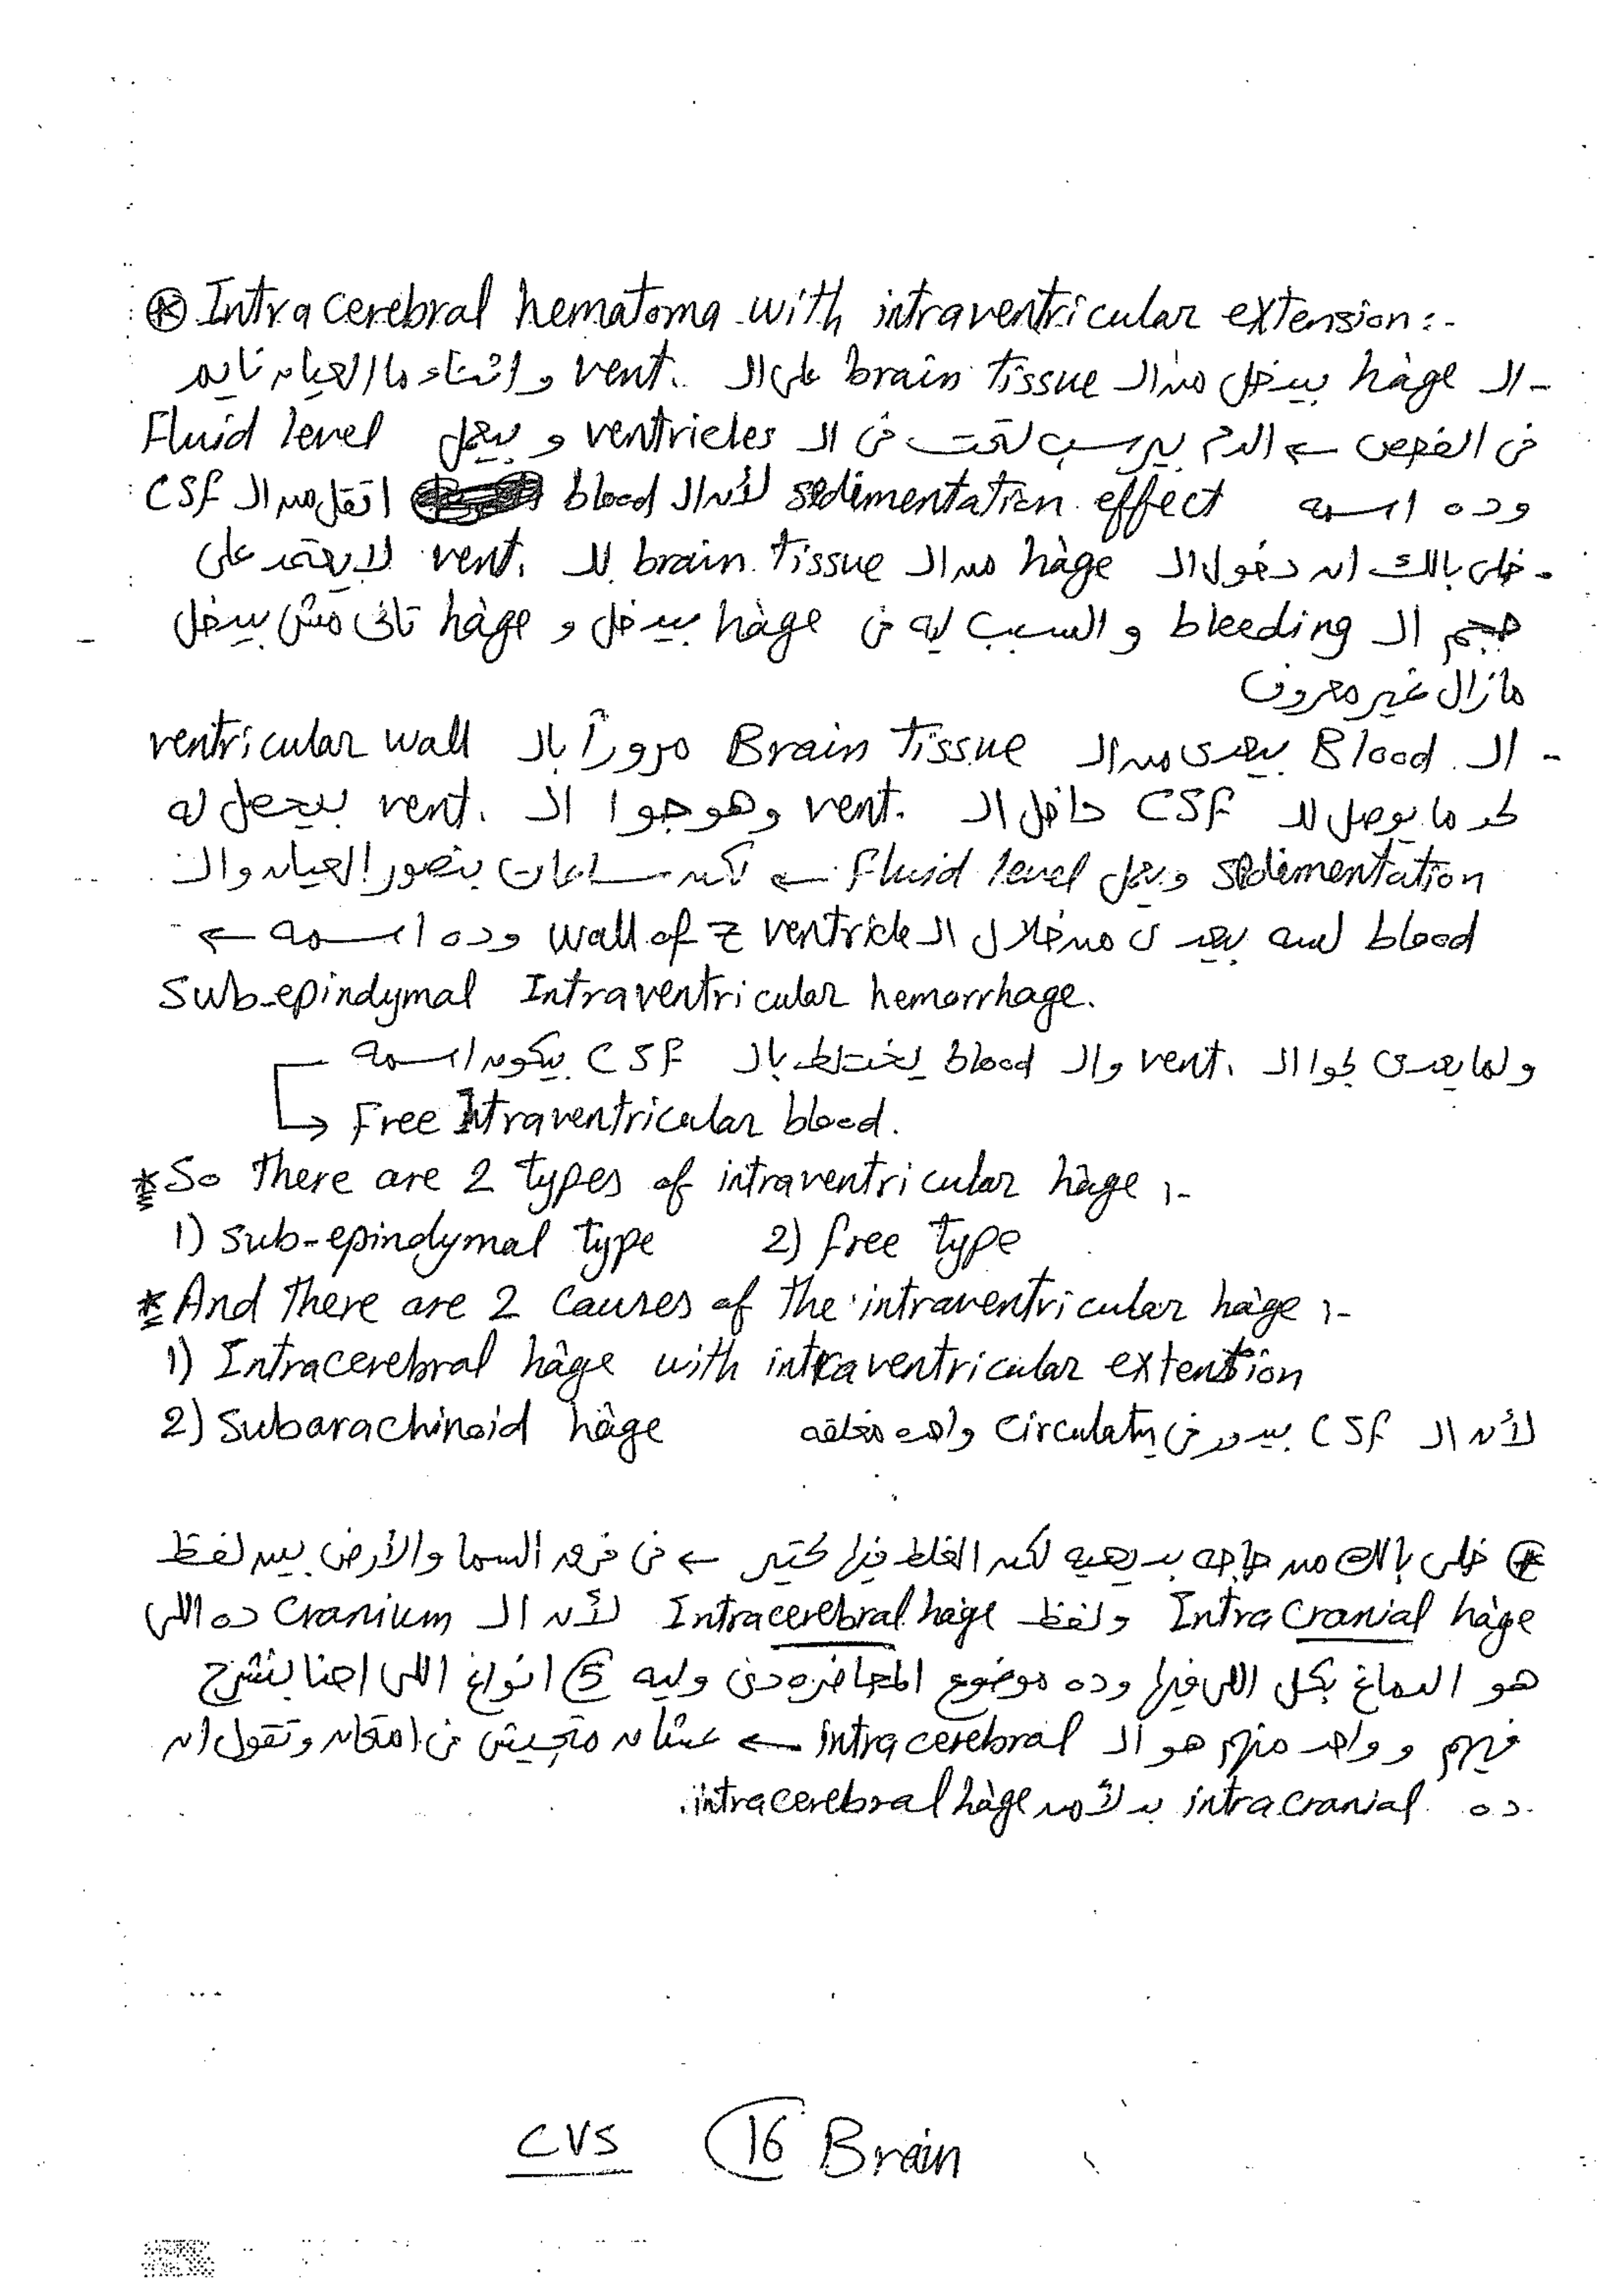 ⊛ Intracerebral hematoma with intraventricular extension :-
- الـ hàge بيدخل من الـ brain tissue على الـ vent. و اثناء ما العيان نايم
فى الفحص ← الدم بيرسب تحت فى الـ ventricles و بيعمل Fluid level
وده اسمه sedimentation effect لأن الـ blood اتقل من الـ CSF
- خلى بالك ان دخول الـ hàge من الـ brain tissue للـ vent. لا يعتمد على
حجم الـ bleeding و السبب ليه فى hàge بيدخل و hàge تانى مش بيدخل
مازال غير معروف
- الـ Blood بيعدى من الـ Brain tissue مروراً بالـ ventricular wall
لحد ما يوصل للـ CSF داخل الـ vent. وهو جوا الـ vent. بيحصل له
sedimentation ويعمل fluid level ← لكن ساعات بنصور العيان والـ
blood لسه بيعدى من خلال الـ wall of z ventricle وده اسمه ←
Sub-epindymal Intraventricular hemorrhage.
ولما يعدى لجوا الـ vent. والـ blood يختلط بالـ CSF بيكون اسمه
→ Free Intraventricular blood.
* So there are 2 types of intraventricular hàge :-
1) sub-epindymal type 2) free type
* And there are 2 causes of the intraventricular hàge :-
1) Intracerebral hàge with intraventricular extension
2) Subarachinoid hàge لأن الـ CSF بيدور فى circulation واحده مغلقه
⊛ خلى بالك من حاجه بديهيه لكن الغلط فيها كتير ← فى فرق السما والأرض بين لفظ
Intracranial hàge ولفظ Intracerebral hage لأن الـ Cranium ده اللى
هو الدماغ بكل اللى فيها وده موضوع المحاضره دى وليه 5 انواع اللى احنا بنشرح
فيهم و واحد منهم هو الـ intracerebral ← عشان متجيش فى امتحان وتقول ان
ده intracranial بدلاً من intracerebral hàge.
CVS 16 Brain